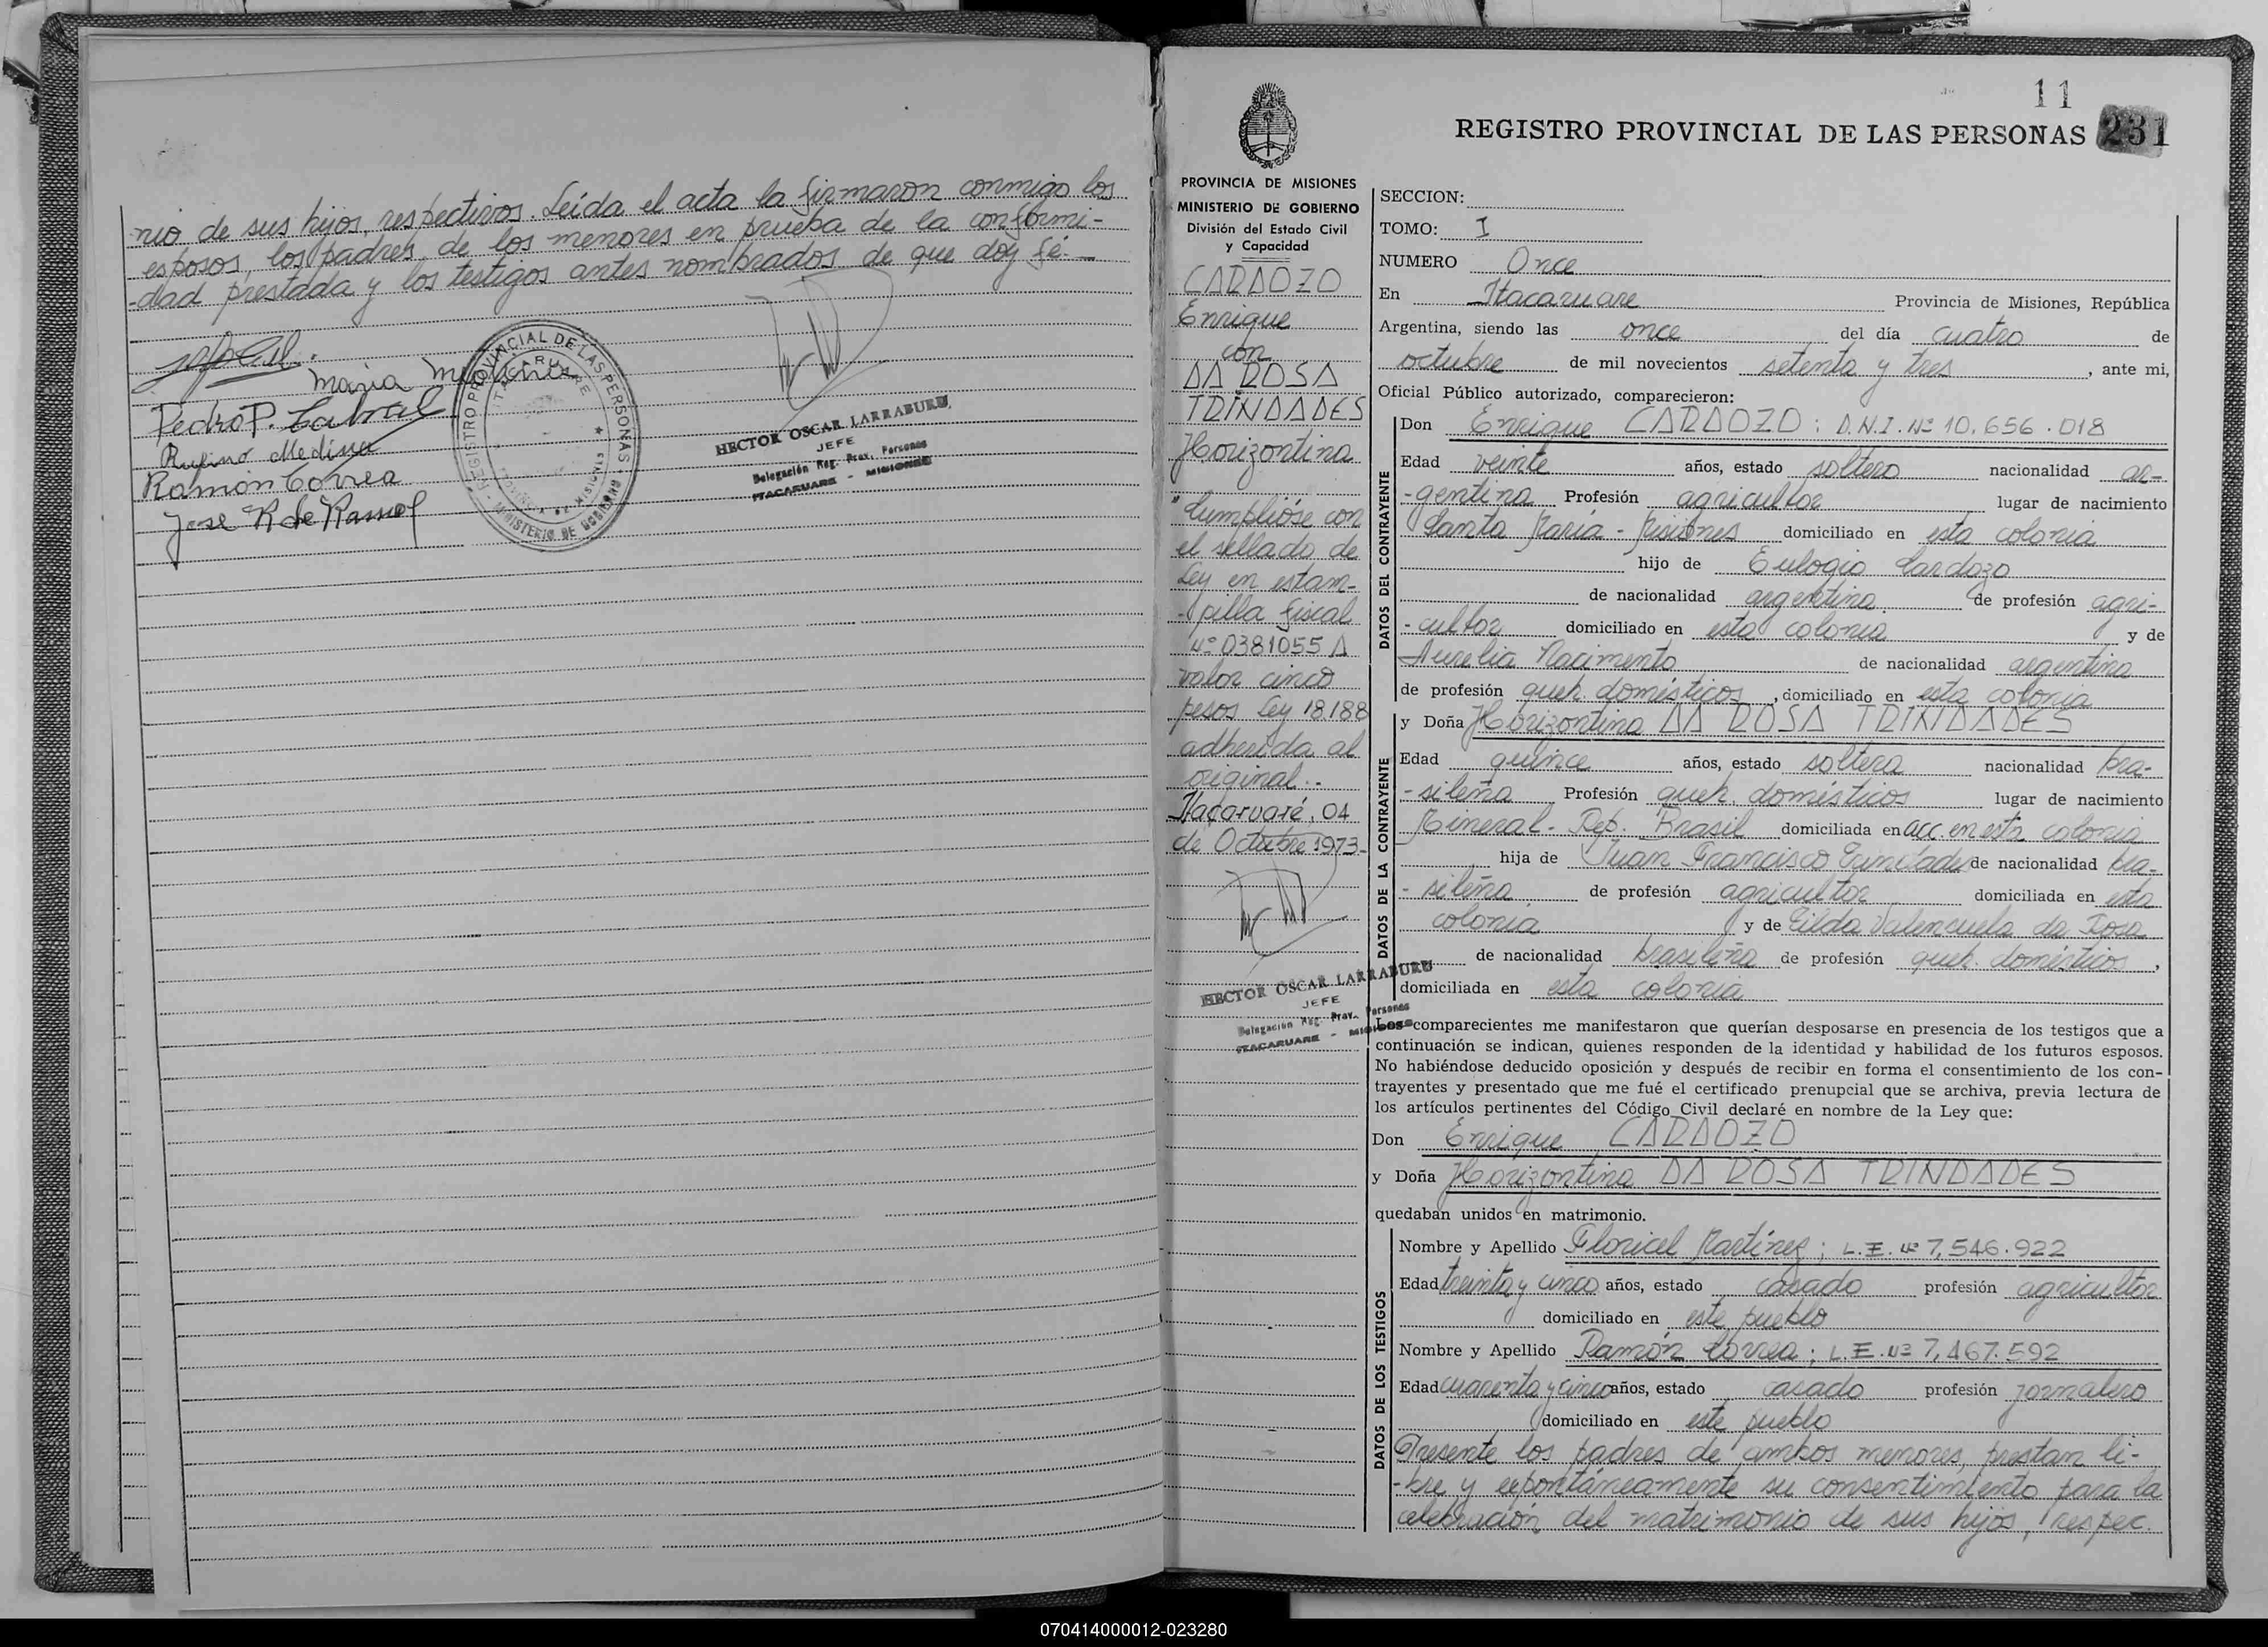 nio de sus hijos, respectivos. Leída el acta la firmaron conmigo los
esposos, los padres de los menores en prueba de la conformi-
-dad prestada y los testigos antes nombrados de que doy fé.-
Maria
Pedro P. Cabral
Rufino Medina
Ramón Correa
Jose R de Ramos
REGISTRO PROVINCIAL DE LAS PERSONAS
ITACARUARE
PROVINCIA DE MISIONES
MINISTERIO DE GOBIERNO
HECTOR OSCAR LARRABURU
JEFE
Delegación Reg. Prov. Personas
ITACARUARE - MISIONES
11
REGISTRO PROVINCIAL DE LAS PERSONAS 231
PROVINCIA DE MISIONES
MINISTERIO DE GOBIERNO
División del Estado Civil
y Capacidad
CARDOZO
Enrique
con
DA ROSA
TRINDADES
Horizontina
"Cumplióse con
el sellado de
Ley en estam-
-pilla fiscal
Nº 0381055 A
valor cinco
pesos Ley 18.188
adherida al
original..
Itacaruaré, 04
de Octubre 1973-
HECTOR OSCAR LARRABURU
JEFE
Delegación Reg. Prov. Personas
ITACARUARE - MISIONES
SECCION:
TOMO: I
NUMERO Once
En Itacaruare Provincia de Misiones, República
Argentina, siendo las once del día cuatro de
octubre de mil novecientos setenta y tres, ante mi,
Oficial Público autorizado, comparecieron:
DATOS DEL CONTRAYENTE
Don Enrique CARDOZO: D.N.I. Nº 10.656.018
Edad veinte años, estado soltero nacionalidad ar-
-gentina Profesión agricultor lugar de nacimiento
Santa María - Misiones domiciliado en esta colonia
hijo de Eulogio Cardozo
de nacionalidad argentina de profesión agri-
-cultor domiciliado en esta colonia y de
Aurelia Nacimento de nacionalidad argentina
de profesión queh. domésticos, domiciliado en esta colonia
DATOS DE LA CONTRAYENTE
y Doña Horizontina DA ROSA TRINDADES
Edad quince años, estado soltera nacionalidad bra-
-sileña Profesión queh. domésticos lugar de nacimiento
Mineral - Rep. Brasil domiciliada en acc. en esta colonia
hija de Juan Francisco Trindades de nacionalidad bra-
-sileña de profesión agricultor domiciliada en esta
colonia y de Eilda Valencuela da Rosa
de nacionalidad brasileña de profesión queh. domésticos,
domiciliada en esta colonia
Los comparecientes me manifestaron que querían desposarse en presencia de los testigos que a
continuación se indican, quienes responden de la identidad y habilidad de los futuros esposos.
No habiéndose deducido oposición y después de recibir en forma el consentimiento de los con-
trayentes y presentado que me fué el certificado prenupcial que se archiva, previa lectura de
los artículos pertinentes del Código Civil declaré en nombre de la Ley que:
Don Enrique CARDOZO
y Doña Horizontina DA ROSA TRINDADES
quedaban unidos en matrimonio.
DATOS DE LOS TESTIGOS
Nombre y Apellido Floricel Martínez; L.E. Nº 7.546.922
Edad treinta y cinco años, estado casado profesión agricultor
domiciliado en este pueblo
Nombre y Apellido Ramón Correa; L.E. Nº 7.467.592
Edad cuarenta y cinco años, estado casado profesión jornalero
domiciliado en este pueblo
Presente los padres de ambos menores, prestan li-
-bre y expontáneamente su consentimiento para la
celebración del matrimonio de sus hijos, respec.
070414000012-023280